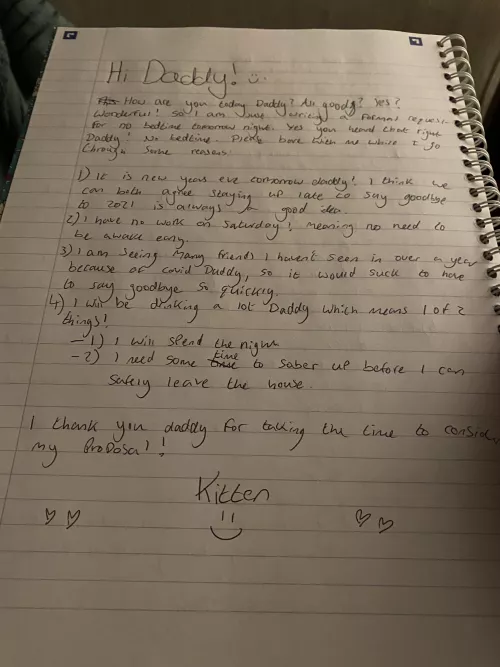 Hi Daddy! :)
How are you today Daddy? All good? Yes?
Wonderful! So I am just writing a formal request
for no bedtime tomorrow night. Yes you heard that right
Daddy! No bedtime. Please bare with me while I go
through some reasons
1) It is new years eve tomorrow daddy! I think we
can both agree staying up late to say goodbye
to 2021 is always a good idea.
2) I have no work on Saturday! meaning no need to
be awake early.
3) I am seeing many friends I havent seen in over a year
because of covid Daddy, so it would suck to have
to say goodbye so quickly.
4) I will be drinking a lot Daddy which means 1 of 2
things!
-1) I will spend the night
-2) I need some time to saber up before I can
safely leave the house.
I thank you daddy for taking the time to consider
my proposal!!
Kitten